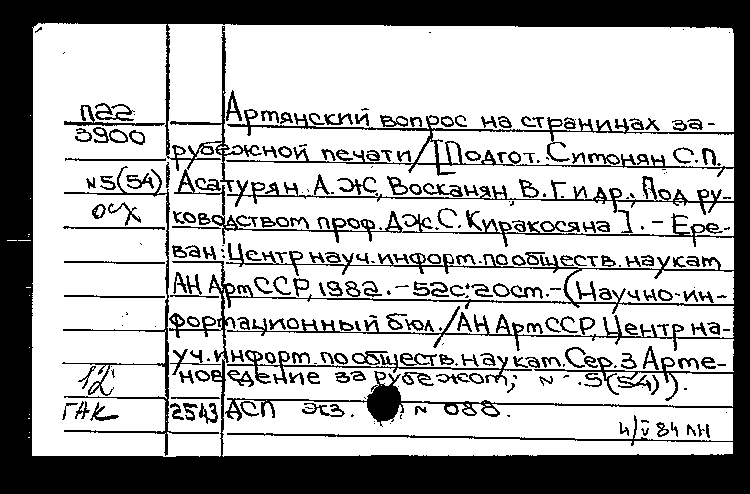 П22
3900
N5(54)
ОЧХ
Армянский вопрос на страницах за-
рубежной печати/[Подгот. Симонян С.П.,
Асатурян А.Ж., Восканян, В.Г. и др.; Под ру-
ководством проф. Дж.С. Киракосяна]. - Ере-
ван: Центр науч. информ. по обществ. наукам
АН АрмССР, 1982. - 52с; 20см. - (Научно-ин-
формационный бюл./АН АрмССР, Центр на-
уч. информ. по обществ. наукам. Сер. 3 Арме-
новедение за рубежом; N 5(54)).
12
ГАК 2543 АСП экз. N 088.
4/V 84 ЛН